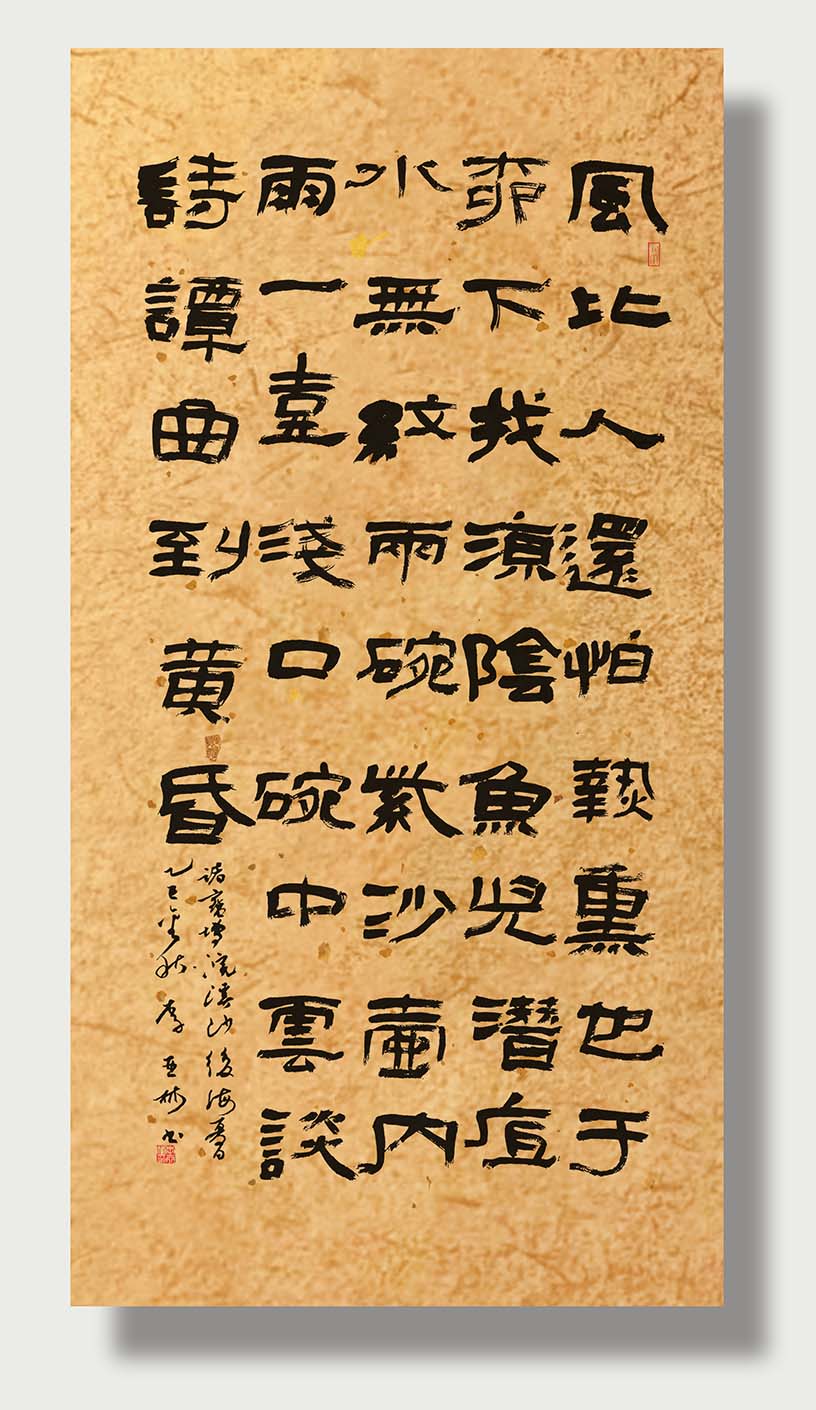 風比人還怕熱熏也于
桺下找涼陰魚兒潛直
水無紋兩碗紫沙壺內
雨一淺口碗中雲談
詩譚曲到黃昏
浣溪沙後海
乙巳金秋李亞彬書